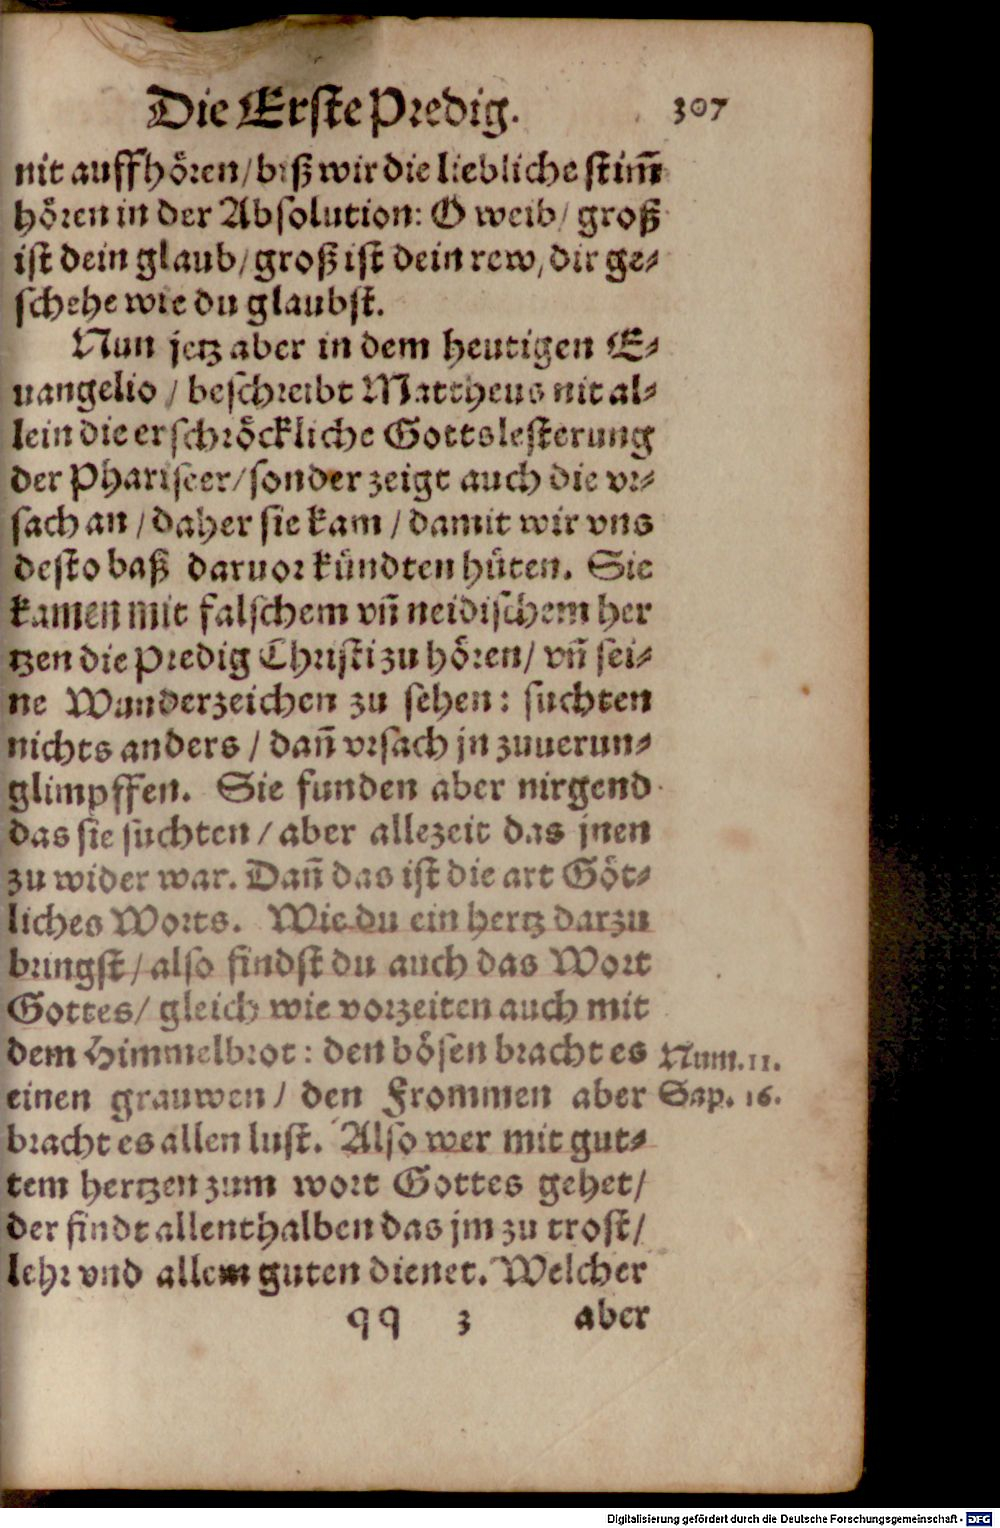 Die Erste Predig. 307
nit auffhören/ biß wir die liebliche stim̃
hören in der Absolution: O weib/ groß
ist dein glaub/ groß ist dein rew, dir ge⸗
schehe wie du glaubst.
Nun jetz aber in dem heutigen E⸗
uangelio / beschreibt Mattheus nit al⸗
lein die erschröckliche Gottslesterung
der Phariseer/ sonder zeigt auch die vr⸗
sach an / daher sie kam / damit wir vns
desto baß daruor kündten hüten. Sie
kamen mit falschem vñ neidischem her
tzen die Predig Christi zu hören/ vñ sei⸗
ne Wunderzeichen zu sehen: suchten
nichts anders / dañ vrsach jn zuuerun⸗
glimpffen. Sie funden aber nirgend
das sie suchten / aber allezeit das jnen
zu wider war. Dañ das ist die art Göt⸗
liches Worts. Wie du ein hertz darzu
bringst / also findst du auch das Wort
Gottes/ gleich wie vorzeiten auch mit
dem Himmelbrot: den bösen bracht es Num. 11.
einen grauwen / den Frommen aber Sap. 16.
bracht es allen lust. Also wer mit gut⸗
tem hertzen zum wort Gottes gehet/
der findt allenthalben das jm zu trost/
lehr vnd allem guten dienet. Welcher
qq 3 aber
Digitalisierung gefördert durch die Deutsche Forschungsgemeinschaft - DFG